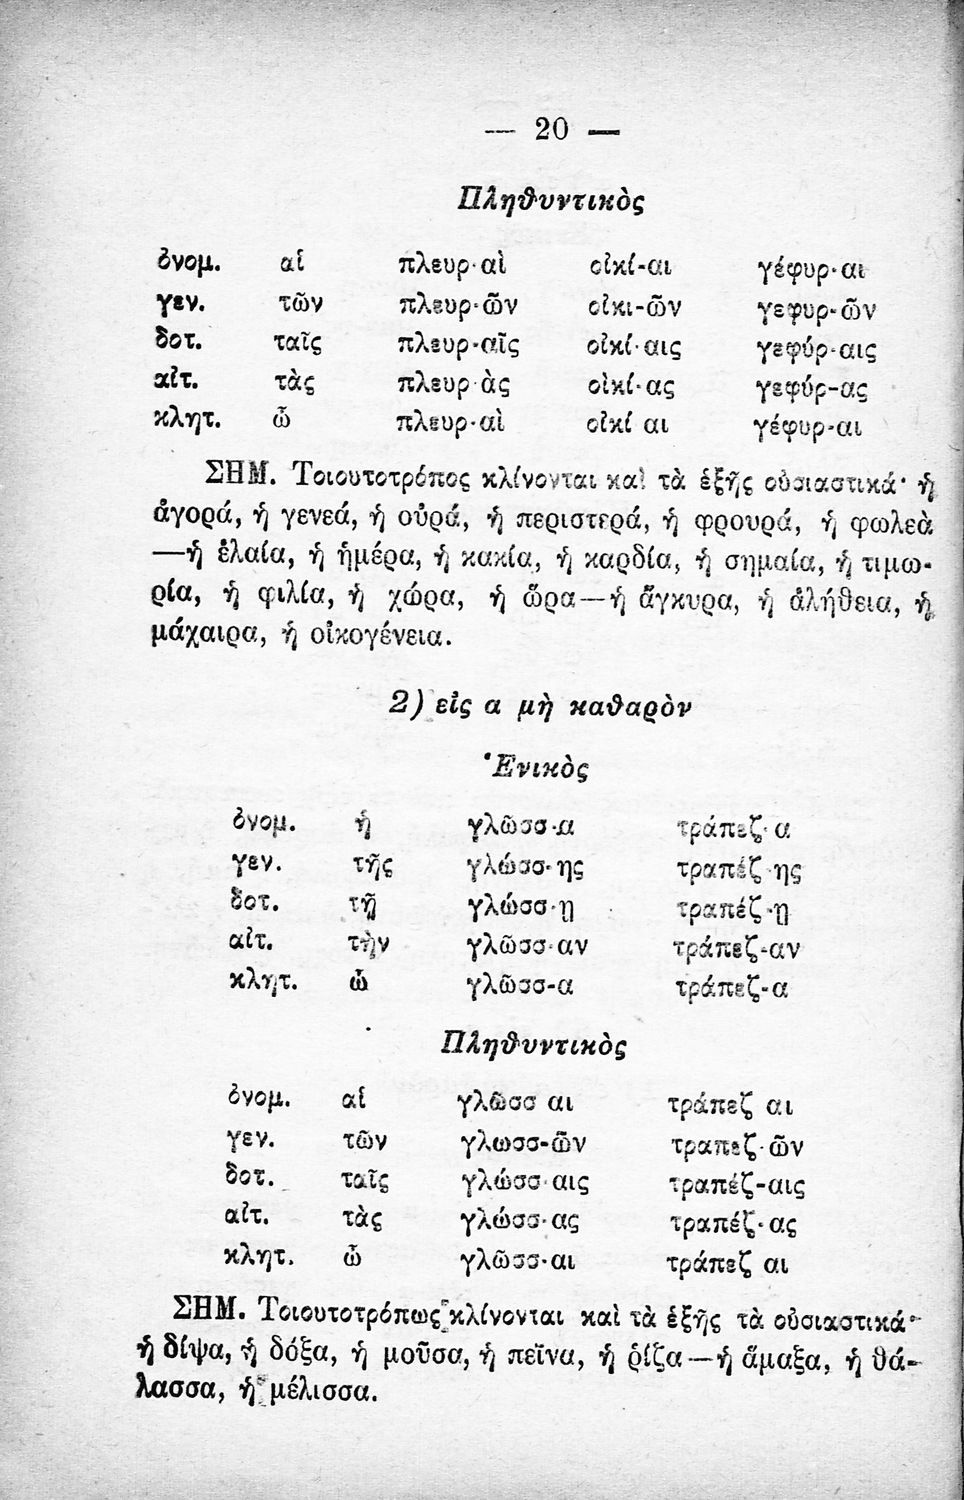 — 20 —
Πληθυντικὸς
ὀνομ. αἱ πλευρ-αὶ οἰκί-αι γέφυρ-αι
γεν. τῶν πλευρ-ῶν οἰκι-ῶν γεφυρ-ῶν
δοτ. ταῖς πλευρ-αῖς οἰκί-αις γεφύρ-αις
αἰτ. τὰς πλευρ ὰς οἰκί-ας γεφύρ-ας
κλητ. ὦ πλευρ-αὶ οἰκί αι γέφυρ-αι
ΣΗΜ. Τοιουτοτρόπος κλίνονται καὶ τὰ ἑξῆς οὐσιαστικά· ἡ
ἀγορά, ἡ γενεά, ἡ οὐρά, ἡ περιστερά, ἡ φρουρά, ἡ φωλεὰ
—ἡ ἐλαία, ἡ ἡμέρα, ἡ κακία, ἡ καρδία, ἡ σημαία, ἡ τιμω-
ρία, ἡ φιλία, ἡ χώρα, ἡ ὥρα—ἡ ἄγκυρα, ἡ ἀλήθεια, ἡ
μάχαιρα, ἡ οἰκογένεια.
2) εἰς α μὴ καθαρὸν
Ἑνικὸς
ὀνομ. ἡ γλῶσσ-α τράπεζ-α
γεν. τῆς γλώσσ-ης τραπέζ-ης
δοτ. τῇ γλώσσ-ῃ τραπέζ-ῃ
αἰτ. τὴν γλῶσσ-αν τράπεζ-αν
κλητ. ὦ γλῶσσ-α τράπεζ-α
Πληθυντικὸς
ὀνομ. αἱ γλῶσσ αι τράπεζ αι
γεν. τῶν γλωσσ-ῶν τραπεζ-ῶν
δοτ. ταῖς γλώσσ-αις τραπέζ-αις
αἰτ. τὰς γλώσσ-ας τραπέζ-ας
κλητ. ὦ γλῶσσ-αι τράπεζ αι
ΣΗΜ. Τοιουτοτρόπως κλίνονται καὶ τὰ ἑξῆς τὰ οὐσιαστικά·
ἡ δίψα, ἡ δόξα, ἡ μοῦσα, ἡ πεῖνα, ἡ ῥίζα—ἡ ἅμαξα, ἡ θά-
λασσα, ἡ μέλισσα.